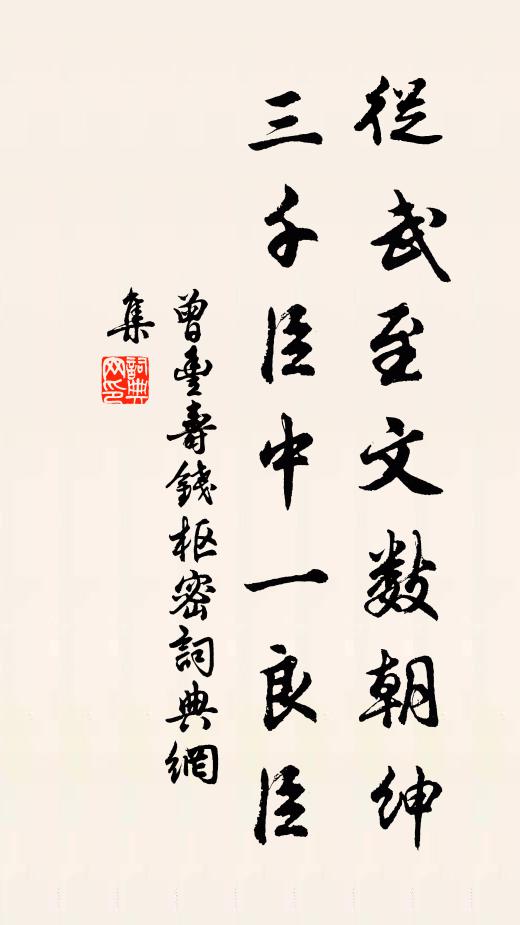 從武至文數朝紳
三千臣中一良臣
曾豐壽錢枢密詞典網
集
詞典网印